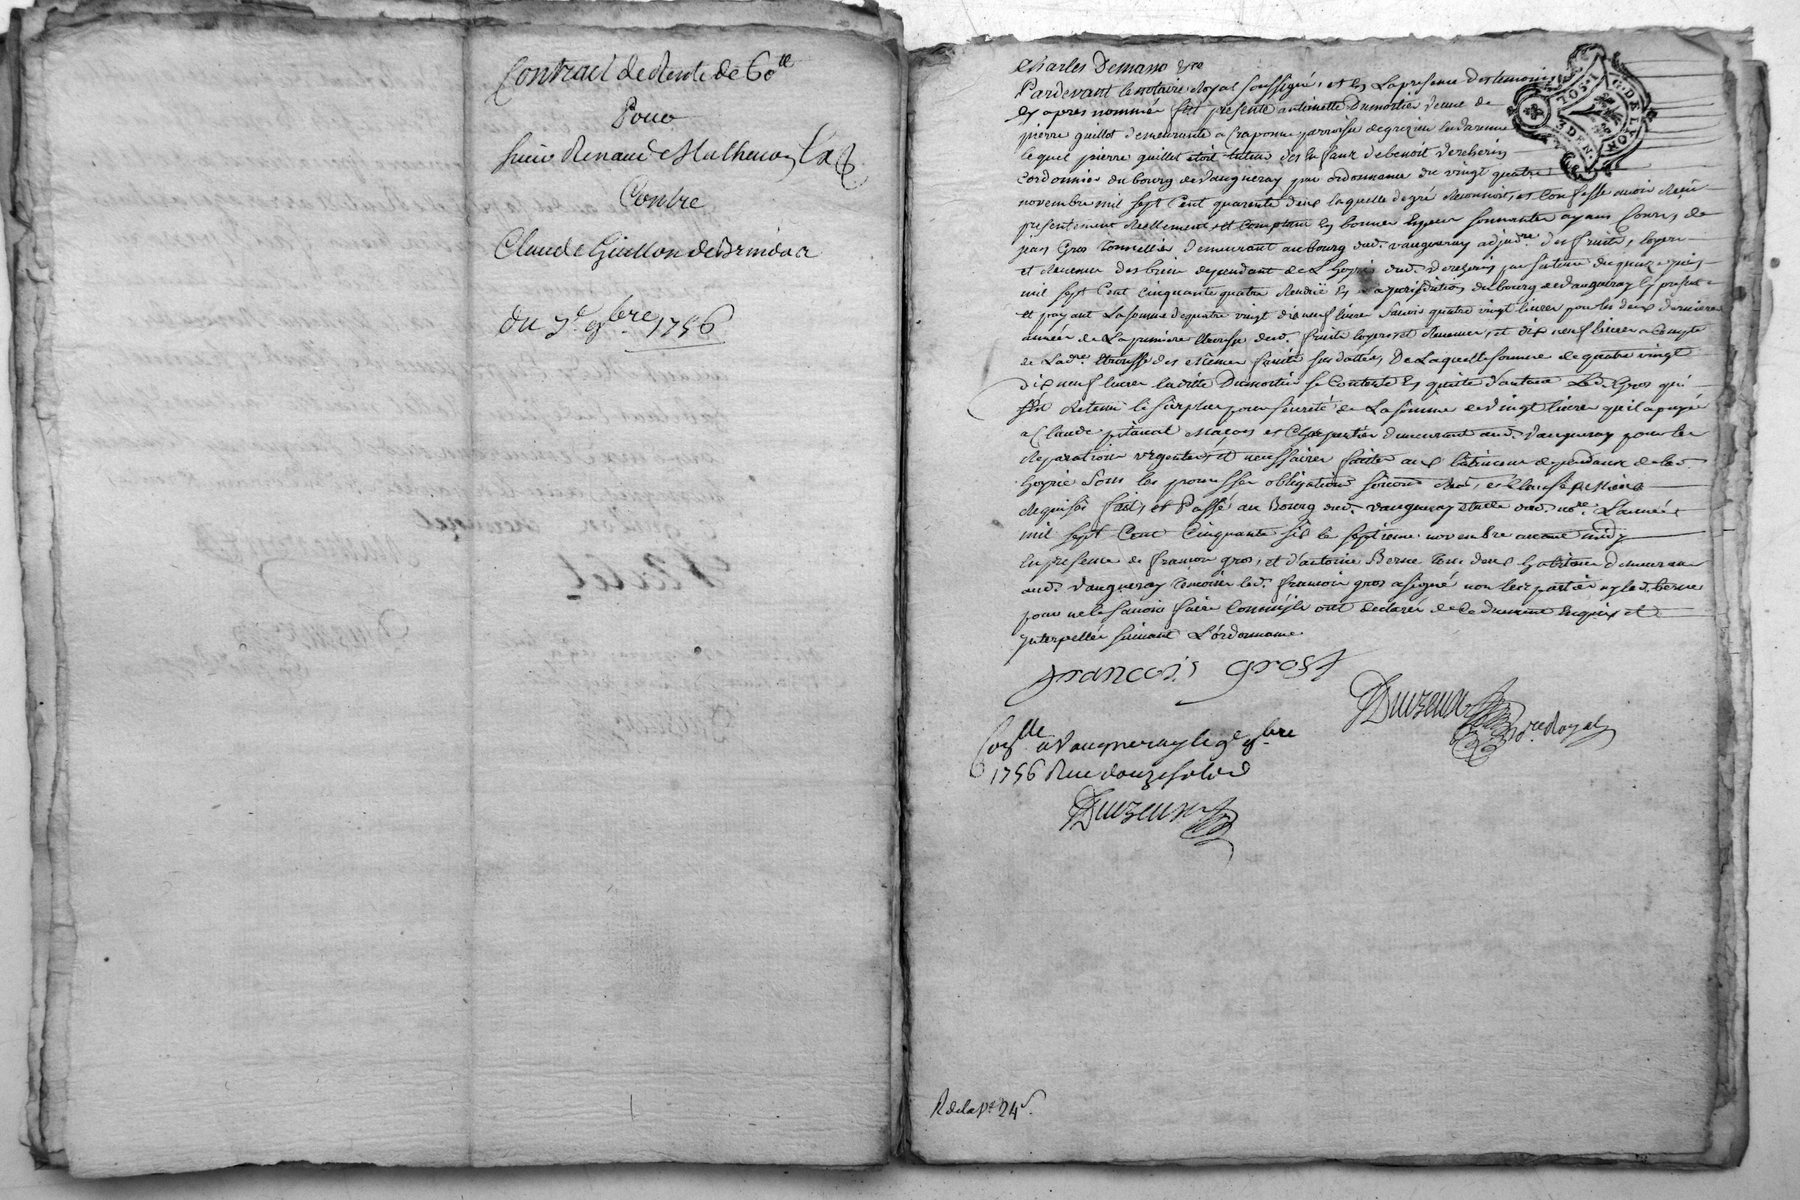 Contract de Rente de 60ᵗᵗ
Pour
Sieur Renaud Mathevon
Contre
Claude Giallon de Brindas
Du 7ᵉ 9bre 1756
Pardevant le notaire Royal soussigné, et en la presence des temoins
en apres nommés fut presente antoinette Dumortier veuve de
pierre guillot demeurante a Craponne parroisse de grezieu la varenne
lequel pierre guillot etoit tuteur des enfans de benoit
cordonnier du bourg de Vaugneray par ordonnance du vingt quatre
novembre mil sept Cent quarente deux laquelle de gré reconnoit, et confesse avoir receu
presentement reellement et comptant en bonnes especes sonnantes ayans cours, de
jean Gros Tonnellier demeurant au bourg dud. vaugneray adjudre. des fruits, loyers
et revenus des biens dependant de L'hoyrie dud. par sentence du quinze
mil sept Cent Cinquante quatre rendue en la jurisdiction du bourg de Vaugneray la presente
et payant La somme de quatre vingt dix neuf livres Savoir quatre vingt livres pour les deux dernieres
années de La premiere dud. fruits loyers et revenus, et dix neuf livres a Compte
de Ladre. des mêmes fruits susdattée, De Laquelle somme de quatre vingt
dix neuf livres laditte Dumortier se Contente en quitte d'autant Led. Gros qui
s'est retenu le surplus pour seureté de La somme de Vingt livres qu'il a payée
a Claude pitaval Maçon et Charpentier demeurant aud. Vaugneray pour les
reparations urgentes et necessaires faites aux batimens dependans de lad.
hoyrie Sous les promesses obligations
requises fait, et Passé au Bourg dud. vaugneray etude dud. nore. L'année
mil sept Cent Cinquante six le septieme novembre avant midy
en presence de françois gros, et d'antoine Berne tous deux habitans demeurans
aud. Vaugneray temoins led. françois gros a signé non lesd. parties ny led. berne
pour ne le savoir faire comme ils ont declaré de ce duement enquis et
interpellés suivant L'ordonnance
françois grost
Duvzeua Nre Royal
Conlle a Vaugneray le 9e 9bre
1756 Reçu douze sols
Duvzeua
R de la pe 24s.
G. DE LYON
3 DEN.